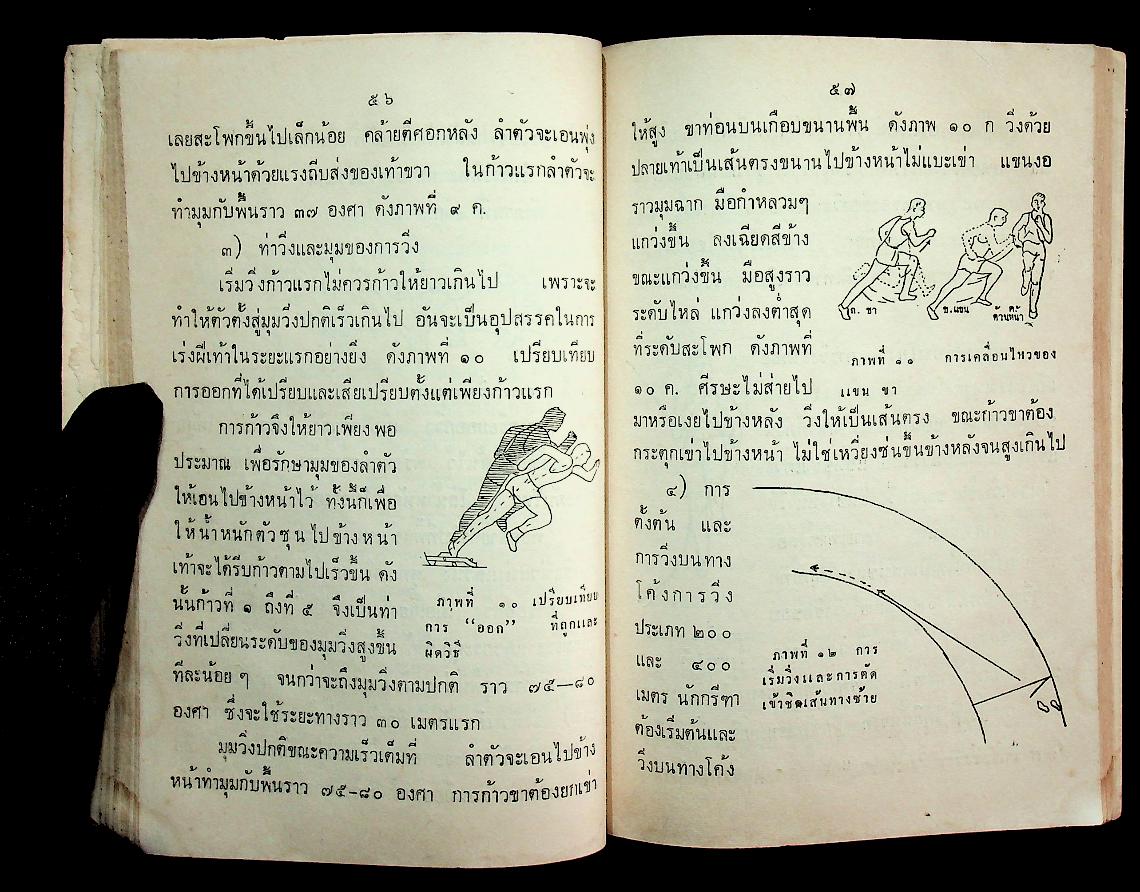 ๕๖
เลยสะโพกขึ้นไปเล็กน้อย คล้ายตีศอกหลัง ลำตัวจะเอนพุ่ง
ไปข้างหน้าด้วยแรงถีบส่งของเท้าขวา ในก้าวแรกลำตัวจะ
ทำมุมกับพื้นราว ๓๗ องศา ดังภาพที่ ๙ ค.
๓) ท่าวิ่งและมุมของการวิ่ง
เริ่มวิ่งก้าวแรกไม่ควรก้าวให้ยาวเกินไป เพราะจะ
ทำให้ตัวตั้งสู่มุมวิ่งปกติเร็วเกินไป อันจะเป็นอุปสรรคในการ
เร่งฝีเท้าในระยะแรกอย่างยิ่ง ดังภาพที่ ๑๐ เปรียบเทียบ
การออกที่ได้เปรียบและเสียเปรียบตั้งแต่เพียงก้าวแรก
การก้าวจึงให้ยาวเพียงพอ
ประมาณ เพื่อรักษามุมของลำตัว
ให้เอนไปข้างหน้าไว้ ทั้งนี้ก็เพื่อ
ให้น้ำหนักตัวซุนไปข้างหน้า
เท้าจะได้รีบก้าวตามไปเร็วขึ้น ดัง
นั้นก้าวที่ ๑ ถึงที่ ๕ จึงเป็นท่า
วิ่งที่เปลี่ยนระดับของมุมวิ่งสูงขึ้น
ทีละน้อยๆ จนกว่าจะถึงมุมวิ่งตามปกติ ราว ๗๕—๘๐
องศา ซึ่งจะใช้ระยะทางราว ๓๐ เมตรแรก
มุมวิ่งปกติขณะความเร็วเต็มที่ ลำตัวจะเอนไปข้าง
หน้าทำมุมกับพื้นราว ๗๕-๘๐ องศา การก้าวขาต้องยกเข่า
ภาพที่ ๑๐ เปรียบเทียบ
การ “ออก” ที่ถูกและ
ผิดวิธี
๕๗
ให้สูง ขาท่อนบนเกือบขนานพื้น ดังภาพ ๑๐ ก วิ่งด้วย
ปลายเท้าเป็นเส้นตรงขนานไปข้างหน้าไม่แบะเข่า แขนงอ
ราวมุมฉาก มือกำหลวมๆ
แกว่งขึ้น ลงเฉียดสีข้าง
ขณะแกว่งขึ้น มือสูงราว
ระดับไหล่ แกว่งลงต่ำสุด
ที่ระดับสะโพก ดังภาพที่
๑๐ ค. ศีรษะไม่ส่ายไป
มาหรือเงยไปข้างหลัง วิ่งให้เป็นเส้นตรง ขณะก้าวขาต้อง
กระตุกเข่าไปข้างหน้า ไม่ใช่เหวี่ยงซ่นขึ้นข้างหลังจนสูงเกินไป
ก. ขา
ข. แขน
ค. ด้านหน้า
ภาพที่ ๑๑ การเคลื่อนไหวของ
แขน ขา
๔) การ
ตั้งต้น และ
การวิ่งบนทาง
โค้งการวิ่ง
ประเภท ๒๐๐
และ ๔๐๐
เมตร นักกรีฑา
ต้องเริ่มต้นและ
วิ่งบนทางโค้ง
ภาพที่ ๑๒ การ
เริ่มวิ่งและการตัด
เข้าชิดเส้นทางซ้าย